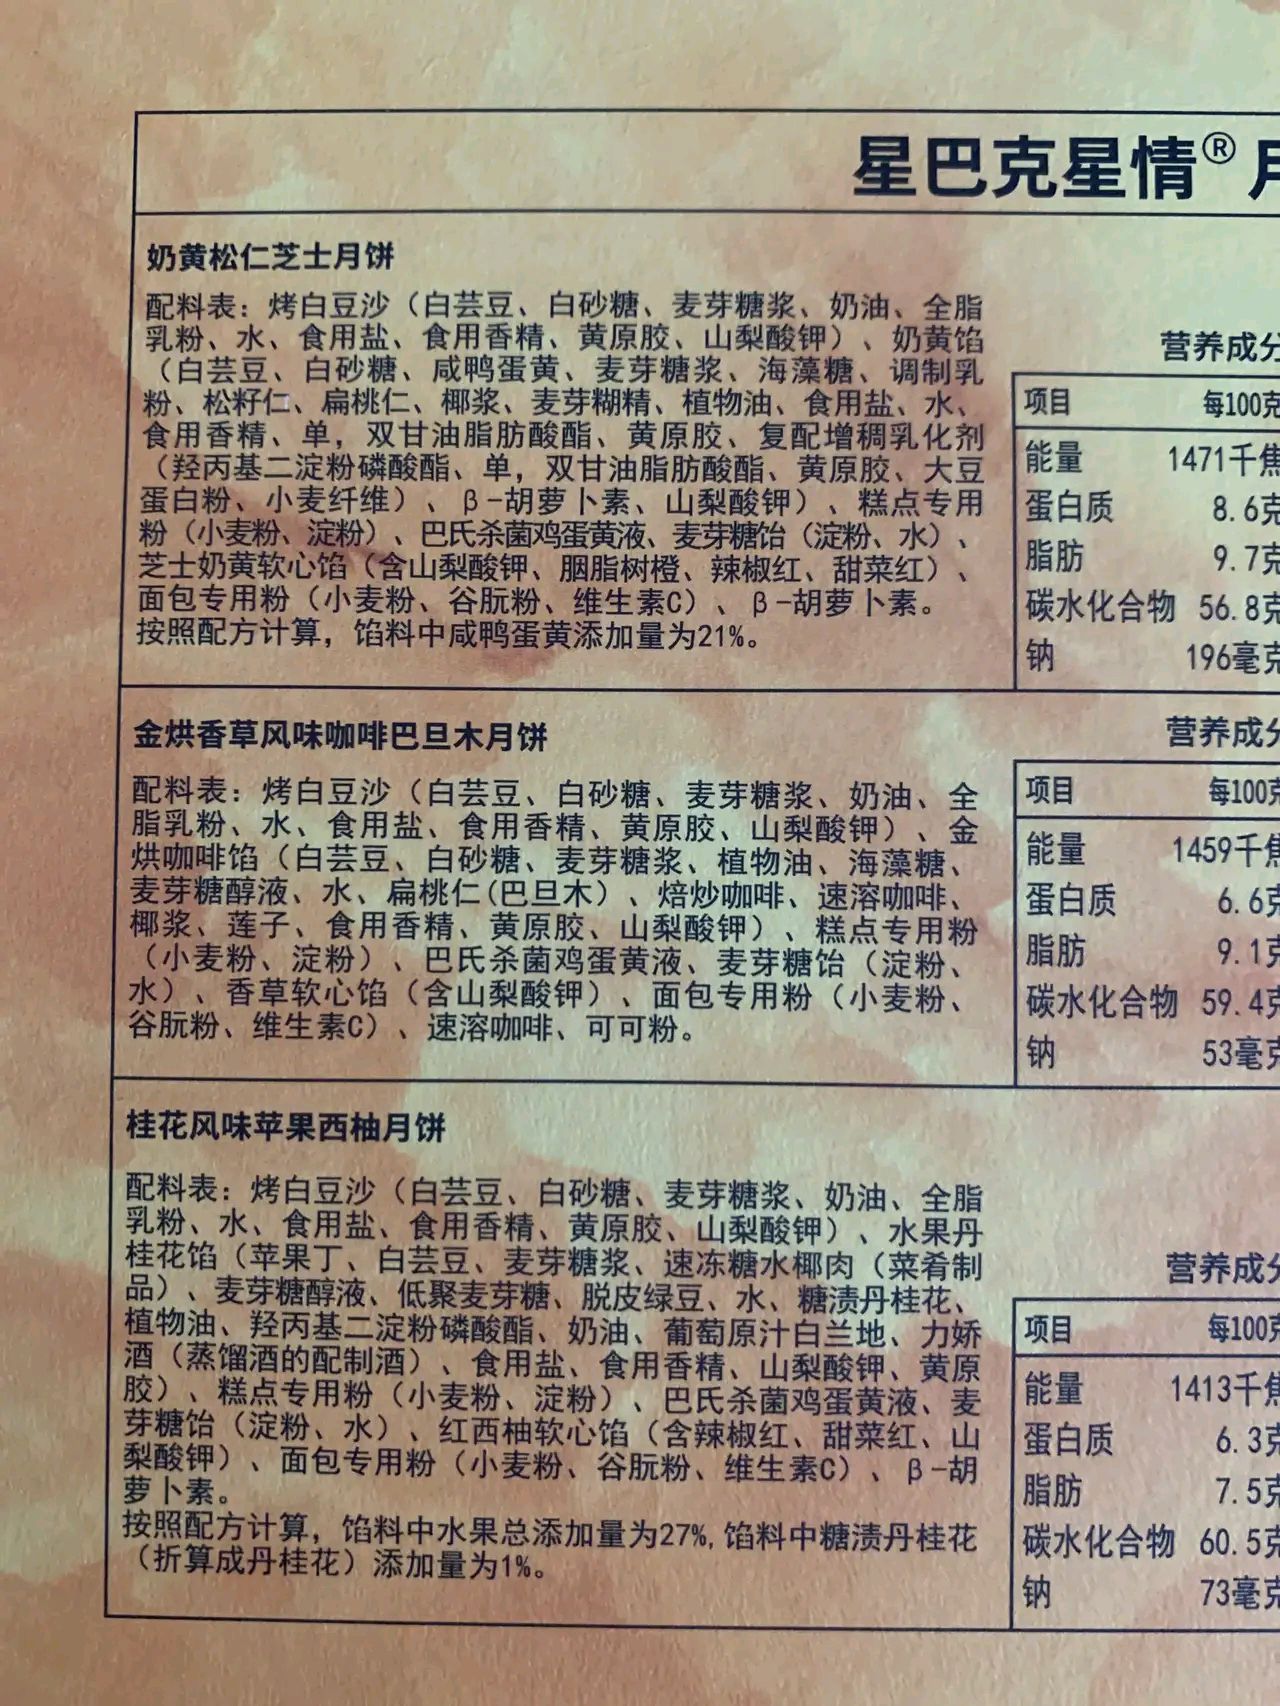 星巴克星情® 月
奶黄松仁芝士月饼
配料表：烤白豆沙（白芸豆、白砂糖、麦芽糖浆、奶油、全脂
乳粉、水、食用盐、食用香精、黄原胶、山梨酸钾）、奶黄馅
（白芸豆、白砂糖、咸鸭蛋黄、麦芽糖浆、海藻糖、调制乳
粉、松籽仁、扁桃仁、椰浆、麦芽糊精、植物油、食用盐、水、
食用香精、单，双甘油脂肪酸酯、黄原胶、复配增稠乳化剂
（羟丙基二淀粉磷酸酯、单，双甘油脂肪酸酯、黄原胶、大豆
蛋白粉、小麦纤维）、β-胡萝卜素、山梨酸钾）、糕点专用
粉（小麦粉、淀粉）、巴氏杀菌鸡蛋黄液、麦芽糖饴（淀粉、水）、
芝士奶黄软心馅（含山梨酸钾、胭脂树橙、辣椒红、甜菜红）、
面包专用粉（小麦粉、谷朊粉、维生素C）、β-胡萝卜素。
按照配方计算，馅料中咸鸭蛋黄添加量为21%。
营养成分
项目 每100克
能量 1471千焦
蛋白质 8.6克
脂肪 9.7克
碳水化合物 56.8克
钠 196毫克
金烘香草风味咖啡巴旦木月饼
配料表：烤白豆沙（白芸豆、白砂糖、麦芽糖浆、奶油、全
脂乳粉、水、食用盐、食用香精、黄原胶、山梨酸钾）、金
烘咖啡馅（白芸豆、白砂糖、麦芽糖浆、植物油、海藻糖、
麦芽糖醇液、水、扁桃仁(巴旦木）、焙炒咖啡、速溶咖啡、
椰浆、莲子、食用香精、黄原胶、山梨酸钾）、糕点专用粉
（小麦粉、淀粉）、巴氏杀菌鸡蛋黄液、麦芽糖饴（淀粉、
水）、香草软心馅（含山梨酸钾）、面包专用粉（小麦粉、
谷朊粉、维生素C）、速溶咖啡、可可粉。
营养成分
项目 每100克
能量 1459千焦
蛋白质 6.6克
脂肪 9.1克
碳水化合物 59.4克
钠 53毫克
桂花风味苹果西柚月饼
配料表：烤白豆沙（白芸豆、白砂糖、麦芽糖浆、奶油、全脂
乳粉、水、食用盐、食用香精、黄原胶、山梨酸钾）、水果丹
桂花馅（苹果丁、白芸豆、麦芽糖浆、速冻糖水椰肉（菜肴制
品）、麦芽糖醇液、低聚麦芽糖、脱皮绿豆、水、糖渍丹桂花、
植物油、羟丙基二淀粉磷酸酯、奶油、葡萄原汁白兰地、力娇
酒（蒸馏酒的配制酒）、食用盐、食用香精、山梨酸钾、黄原
胶）、糕点专用粉（小麦粉、淀粉）、巴氏杀菌鸡蛋黄液、麦
芽糖饴（淀粉、水）、红西柚软心馅（含辣椒红、甜菜红、山
梨酸钾）、面包专用粉（小麦粉、谷朊粉、维生素C）、β-胡
萝卜素。
按照配方计算，馅料中水果总添加量为27%,馅料中糖渍丹桂花
（折算成丹桂花）添加量为1%。
营养成分
项目 每100克
能量 1413千焦
蛋白质 6.3克
脂肪 7.5克
碳水化合物 60.5克
钠 73毫克